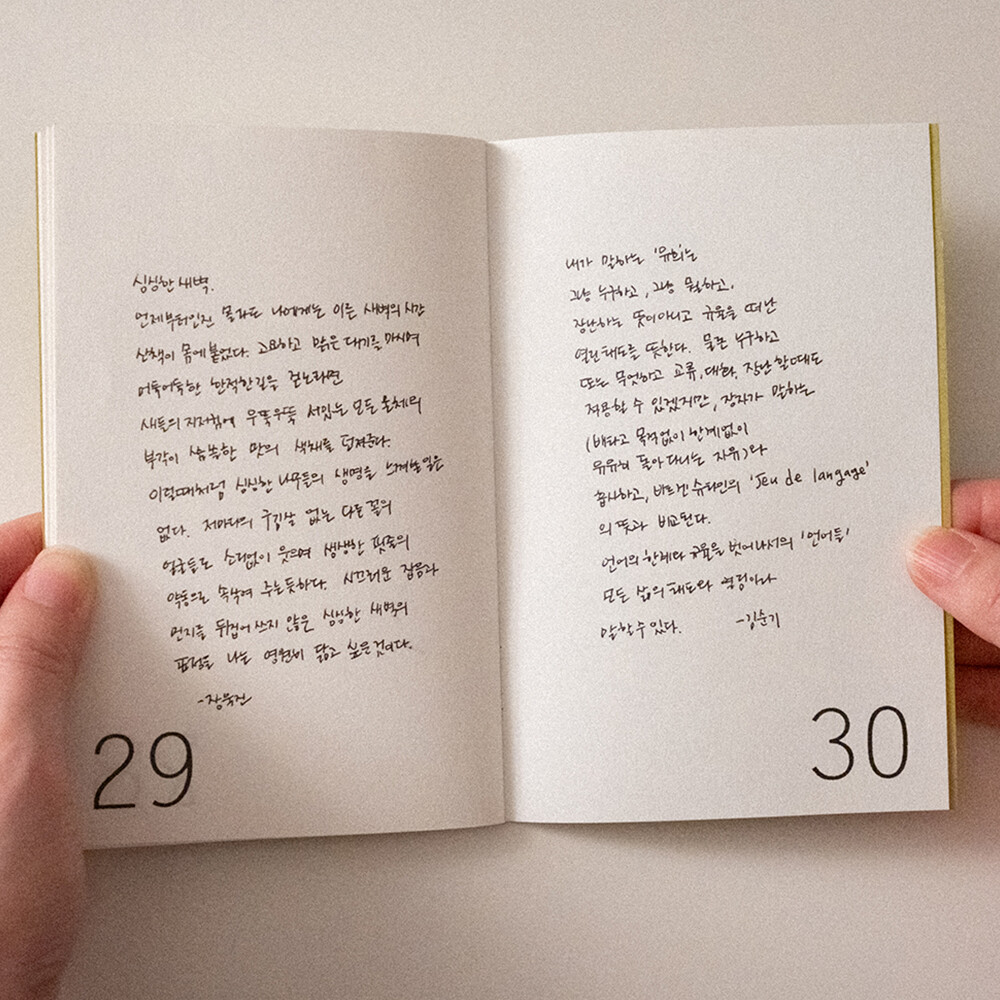 심심한 새벽.
언제부터인진 몰라도 나에게는 이른 새벽의 시간
산책이 몸에 붙었다. 고요하고 맑은 대기를 마시며
어둑어둑한 한적한 길을 걷노라면
새들의 지저귐에 우뚝우뚝 서있는 모든 물체의
부각이 씀쓱한 맛의 색채를 던져준다.
이럴때처럼 싱싱한 나무들의 생명을 느껴본 일은
없다. 저마다의 구김살 없는 다른 꼴의
얼굴들로 소리없이 웃으며 생생한 핏줄의
약동으로 속삭여 주는듯하다. 시끄러운 잡음과
먼지를 뒤집어 쓰지 않은 심심한 새벽의
표정을 나는 영원히 닮고 싶은 것이다.
-장욱진
29
내가 말하는 '유희'는
그냥 누구하고, 그냥 뭘하고,
장난하는 뜻이 아니고 규율을 떠난
열린 태도를 뜻한다. 물론 누구하고
또는 무엇하고 교류, 대화, 장난 할 때도
적용할 수 있겠지만, 장자가 말하는
(배타고 목적없이 한계없이
유유히 돌아 다니는 자유)와
흡사하고, 비트겐슈타인의 'Jeu de langage'
의 뜻과 비교된다.
언어의 한계와 규율을 벗어나서의 '언어들'
모든 삶의 태도와 영정이라
말할 수 있다. -김순기
30